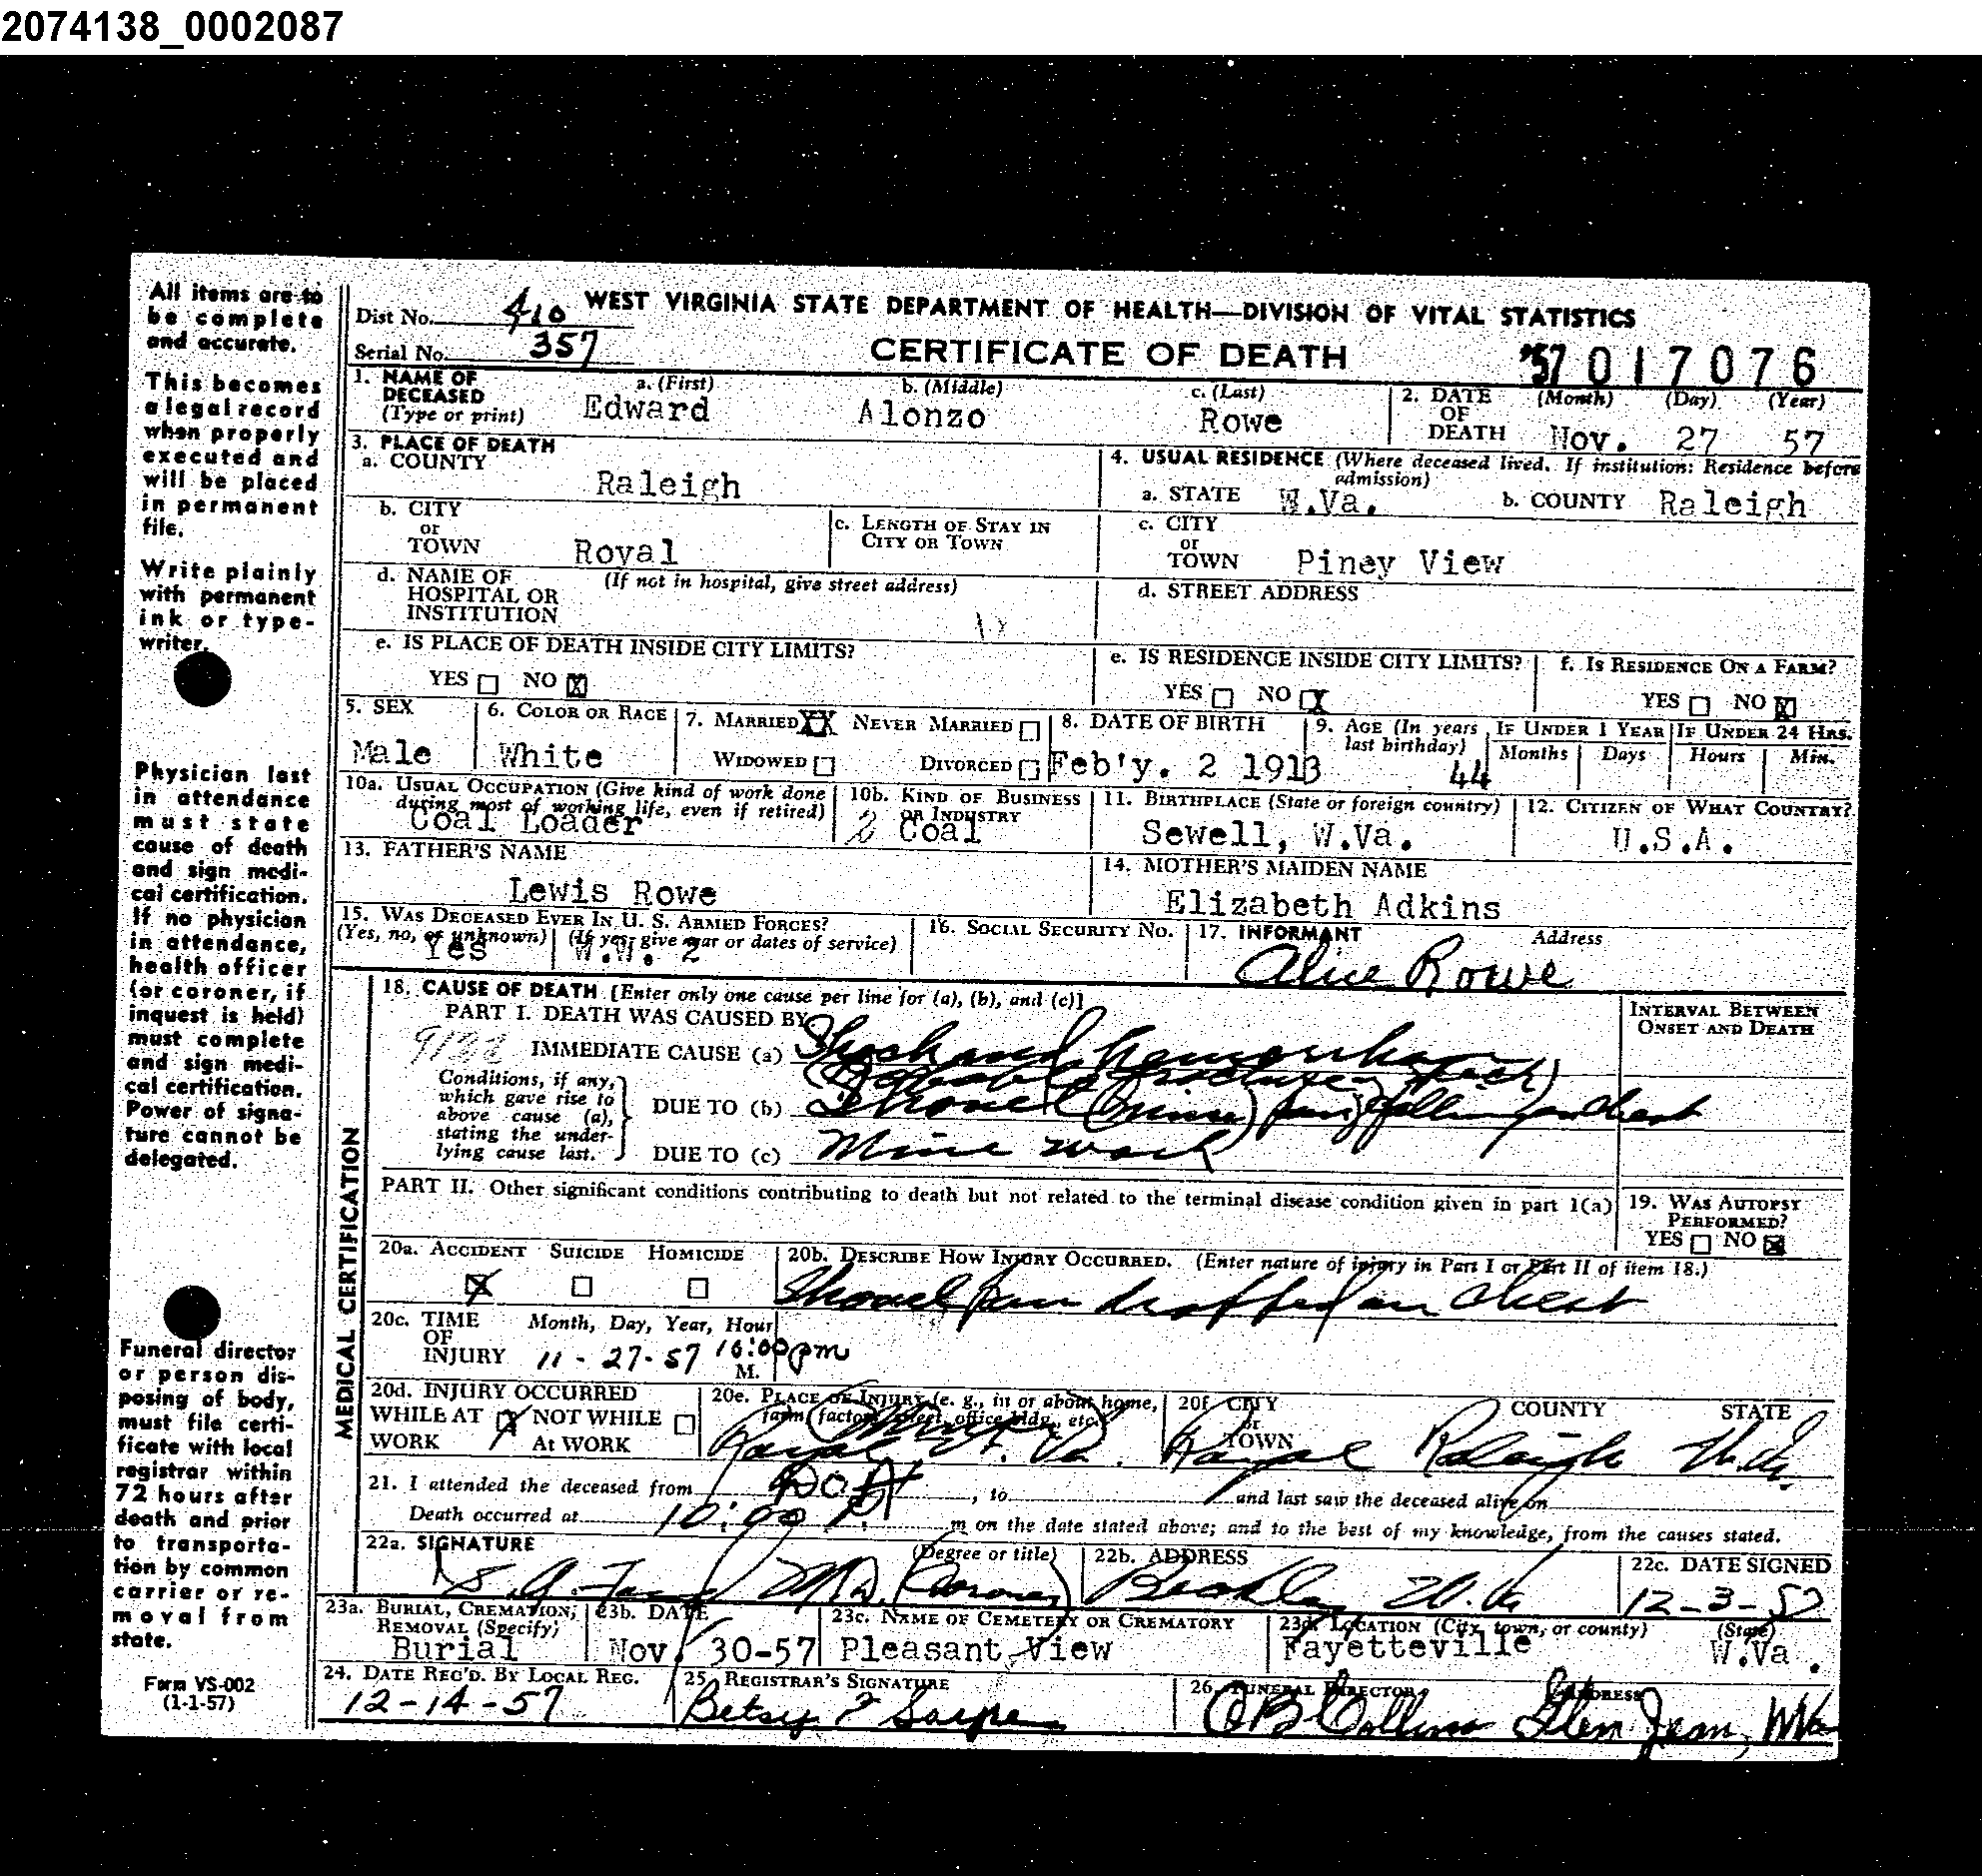 2074138_0002087
All items are to
be complete
and accurate.
This becomes
a legal record
when properly
executed and
will be placed
in permanent
file.
Write plainly
with permanent
ink or type-
writer.
Physician last
in attendance
must state
cause of death
and sign medi-
cal certification.
If no physician
in attendance,
health officer
(or coroner, if
inquest is held)
must complete
and sign medi-
cal certification.
Power of signa-
ture cannot be
delegated.
Funeral director
or person dis-
posing of body,
must file certi-
ficate with local
registrar within
72 hours after
death and prior
to transporta-
tion by common
carrier or re-
moval from
state.
Form VS-002
(1-1-57)
Dist No. 410 WEST VIRGINIA STATE DEPARTMENT OF HEALTH—DIVISION OF VITAL STATISTICS
Serial No. 357 CERTIFICATE OF DEATH '57 017076
1. NAME OF DECEASED (Type or print) a. (First) Edward b. (Middle) Alonzo c. (Last) Rowe
2. DATE OF DEATH (Month) (Day) (Year) Nov. 27 57
3. PLACE OF DEATH
a. COUNTY Raleigh
4. USUAL RESIDENCE (Where deceased lived. If institution: Residence before admission)
a. STATE W.Va. b. COUNTY Raleigh
b. CITY or TOWN Royal
c. LENGTH OF STAY IN CITY OR TOWN
c. CITY or TOWN Piney View
d. NAME OF HOSPITAL OR INSTITUTION (If not in hospital, give street address)
d. STREET ADDRESS
e. IS PLACE OF DEATH INSIDE CITY LIMITS?
YES NO X
e. IS RESIDENCE INSIDE CITY LIMITS?
YES NO X
f. IS RESIDENCE ON A FARM?
YES NO X
5. SEX Male
6. COLOR OR RACE White
7. MARRIED XX NEVER MARRIED
WIDOWED DIVORCED
8. DATE OF BIRTH Feb'y. 2 1913
9. AGE (In years last birthday) 44
IF UNDER 1 YEAR Months Days
IF UNDER 24 HRS. Hours Min.
10a. USUAL OCCUPATION (Give kind of work done during most of working life, even if retired) Coal Loader
10b. KIND OF BUSINESS OR INDUSTRY 2 Coal
11. BIRTHPLACE (State or foreign country) Sewell, W.Va.
12. CITIZEN OF WHAT COUNTRY? U.S.A.
13. FATHER'S NAME Lewis Rowe
14. MOTHER'S MAIDEN NAME Elizabeth Adkins
15. WAS DECEASED EVER IN U. S. ARMED FORCES?
(Yes, no, or unknown) Yes (If yes, give war or dates of service) W.W. 2
16. SOCIAL SECURITY No.
17. INFORMANT Address Alice Rowe
MEDICAL CERTIFICATION
18. CAUSE OF DEATH [Enter only one cause per line for (a), (b), and (c)]
INTERVAL BETWEEN ONSET AND DEATH
PART I. DEATH WAS CAUSED BY
IMMEDIATE CAUSE (a) Shock and hemorrhage
(Probable fracture neck)
Conditions, if any, which gave rise to above cause (a), stating the underlying cause last.
DUE TO (b) Shovel pan falling on chest
DUE TO (c) Mine work
PART II. Other significant conditions contributing to death but not related to the terminal disease condition given in part 1(a)
19. WAS AUTOPSY PERFORMED?
YES NO X
20a. ACCIDENT X SUICIDE HOMICIDE
20b. DESCRIBE HOW INJURY OCCURRED. (Enter nature of injury in Part I or Part II of item 18.)
Shovel pan dropped on chest
20c. TIME OF INJURY Month, Day, Year, Hour 11-27-57 10:00 pm M.
20d. INJURY OCCURRED
WHILE AT WORK X NOT WHILE At WORK
20e. PLACE OF INJURY (e. g., in or about home, farm, factory, street, office bldg., etc.) (Mine) Royal W. Va.
20f. CITY or TOWN Royal COUNTY Raleigh STATE W.Va.
21. I attended the deceased from DOA, to and last saw the deceased alive on
Death occurred at 10:00 P. m on the date stated above; and to the best of my knowledge, from the causes stated.
22a. SIGNATURE (Degree or title) M.D. (Coroner)
22b. ADDRESS Beckley W.Va
22c. DATE SIGNED 12-3-57
23a. BURIAL, CREMATION, REMOVAL (Specify) Burial
23b. DATE Nov. 30-57
23c. NAME OF CEMETERY OR CREMATORY Pleasant View
23d. LOCATION (City, town, or county) (State) Fayetteville W.Va.
24. DATE REC'D. BY LOCAL REG. 12-14-57
25. REGISTRAR'S SIGNATURE Betsy F
26. FUNERAL DIRECTOR ADDRESS OB Collins Glen Jean, WVa